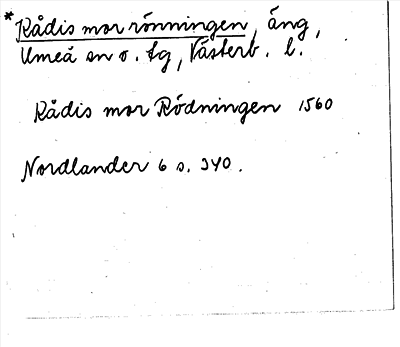 *Rådis mor rönningen, äng,
Umeå sn o. tg, Västerb. l.
Rådis mor Rödningen 1560
Nordlander 6 s. 340.